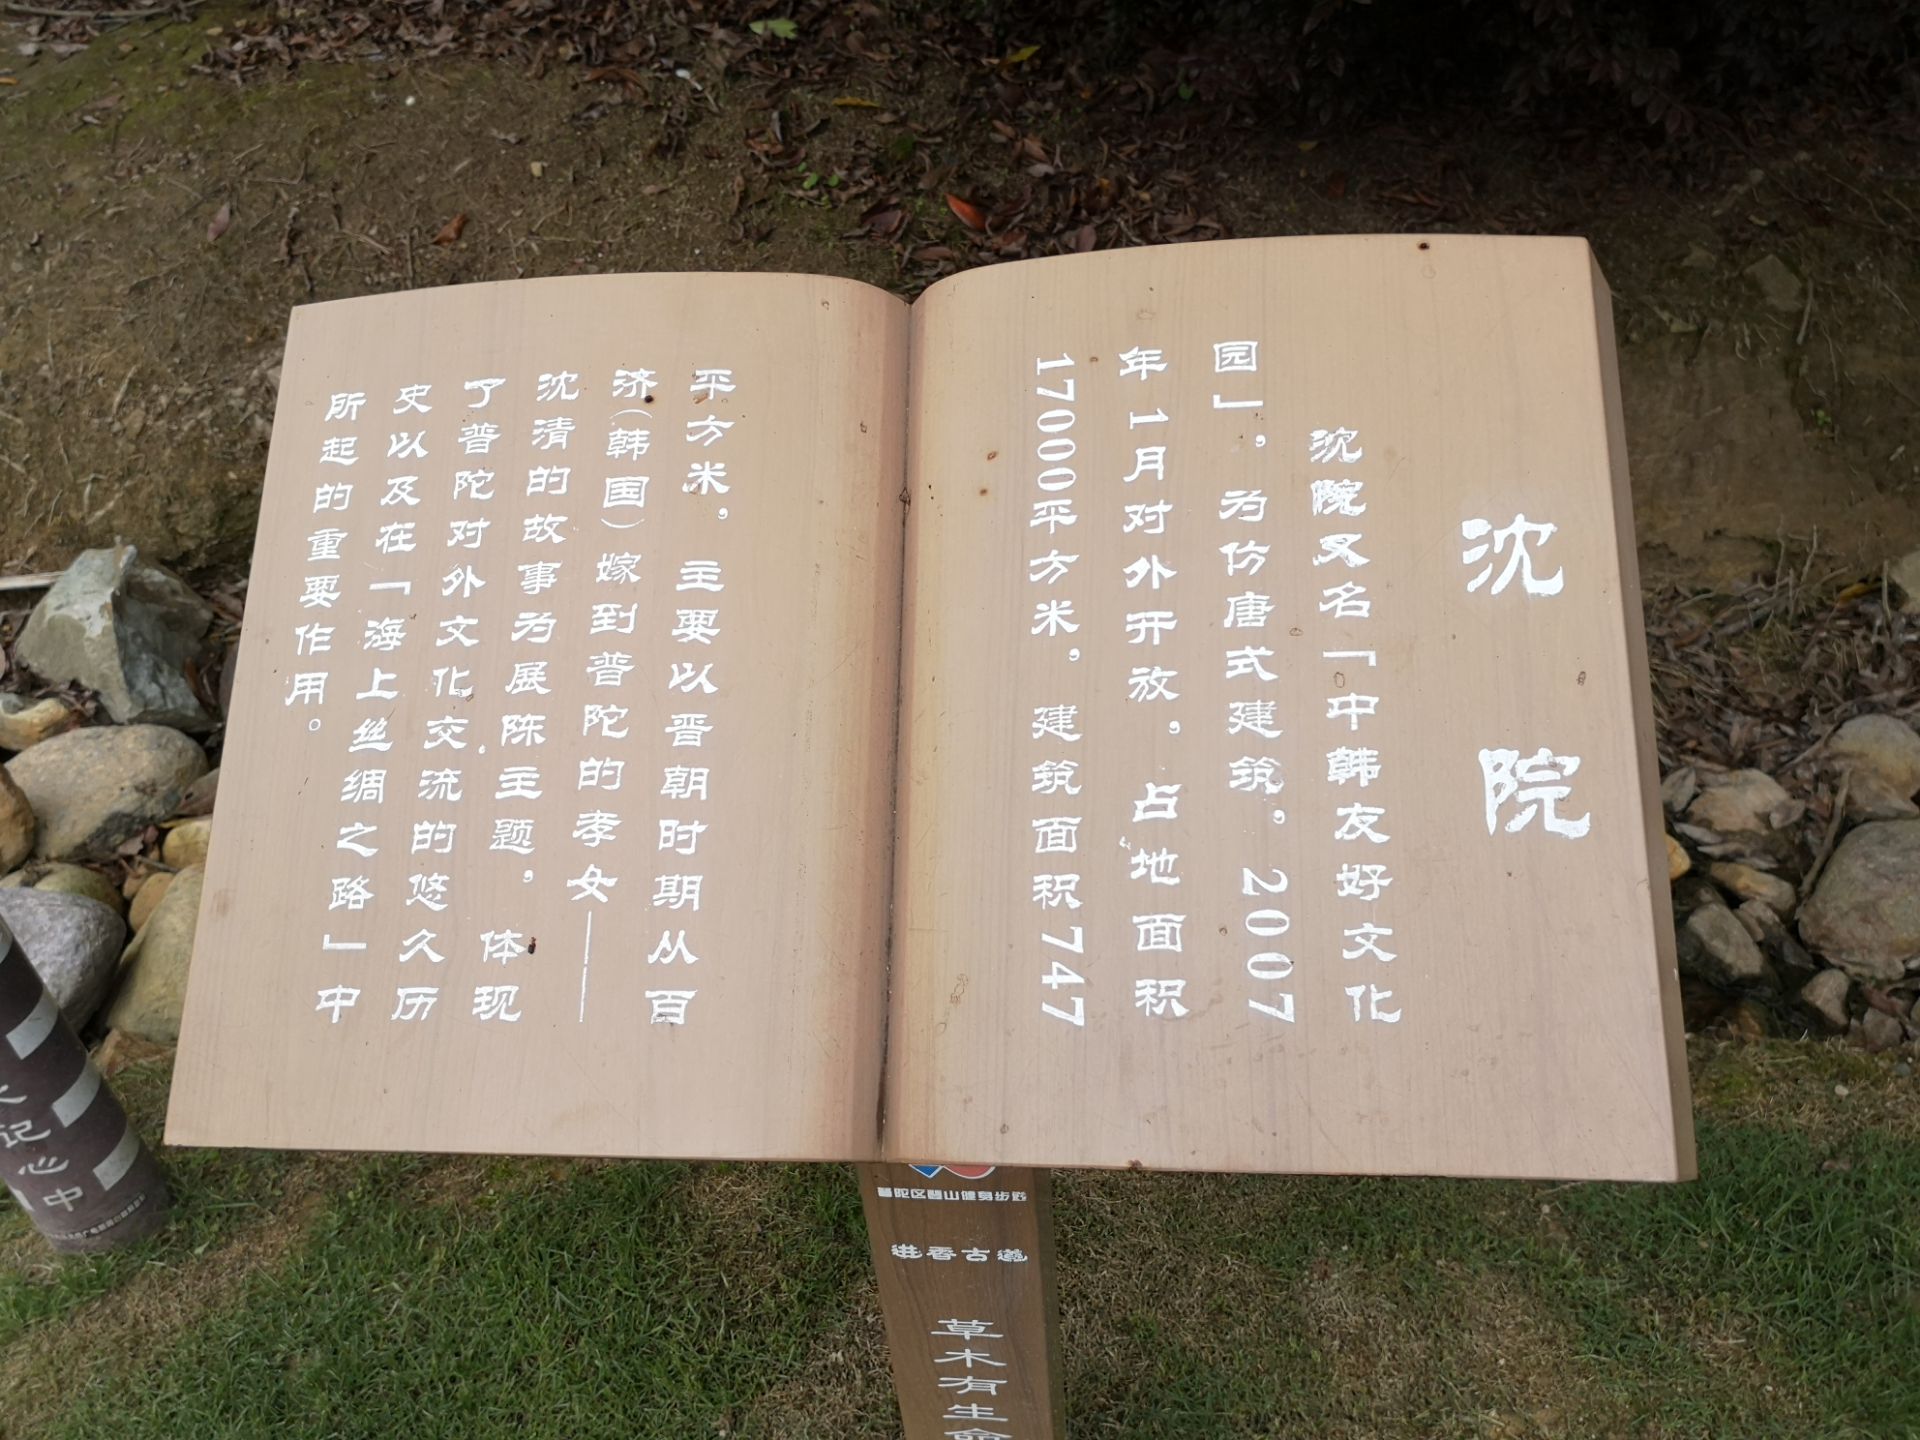 沈院
沈院又名「中韩友好文化
园」，为仿唐式建筑。2007
年1月对外开放，占地面积
17000平方米，建筑面积747
平方米，主要以晋朝时期从百
济（韩国）嫁到普陀的孝女——
沈清的故事为展陈主题，体现
了普陀对外文化交流的悠久历
史以及在「海上丝绸之路」中
所起的重要作用。
普陀区普山健身步道
进香古道
草木有生命
记心中